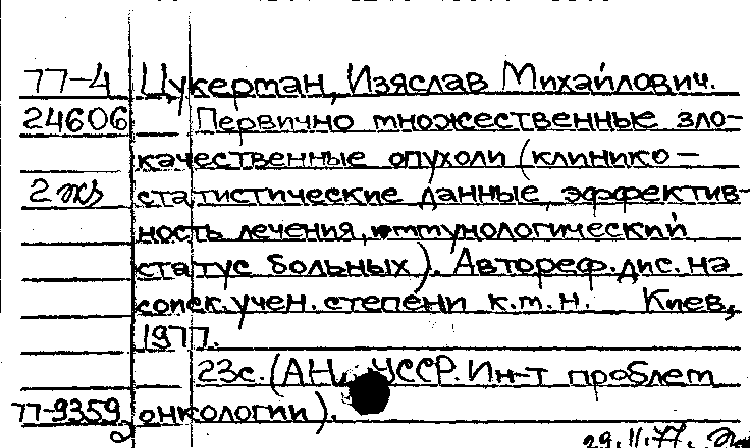 77-4 Цукерман, Изяслав Михайлович.
24606 Первично множественные зло-
качественные опухоли (клинико-
2 экз статистические данные, эффектив-
ность лечения, иммунологический
статус больных). Автореф. дис. на
соиск. учен. степени к.м.н. Киев,
1977.
23с. (АН УССР. Ин-т проблем
77-9359 онкологии).
29.11.77.